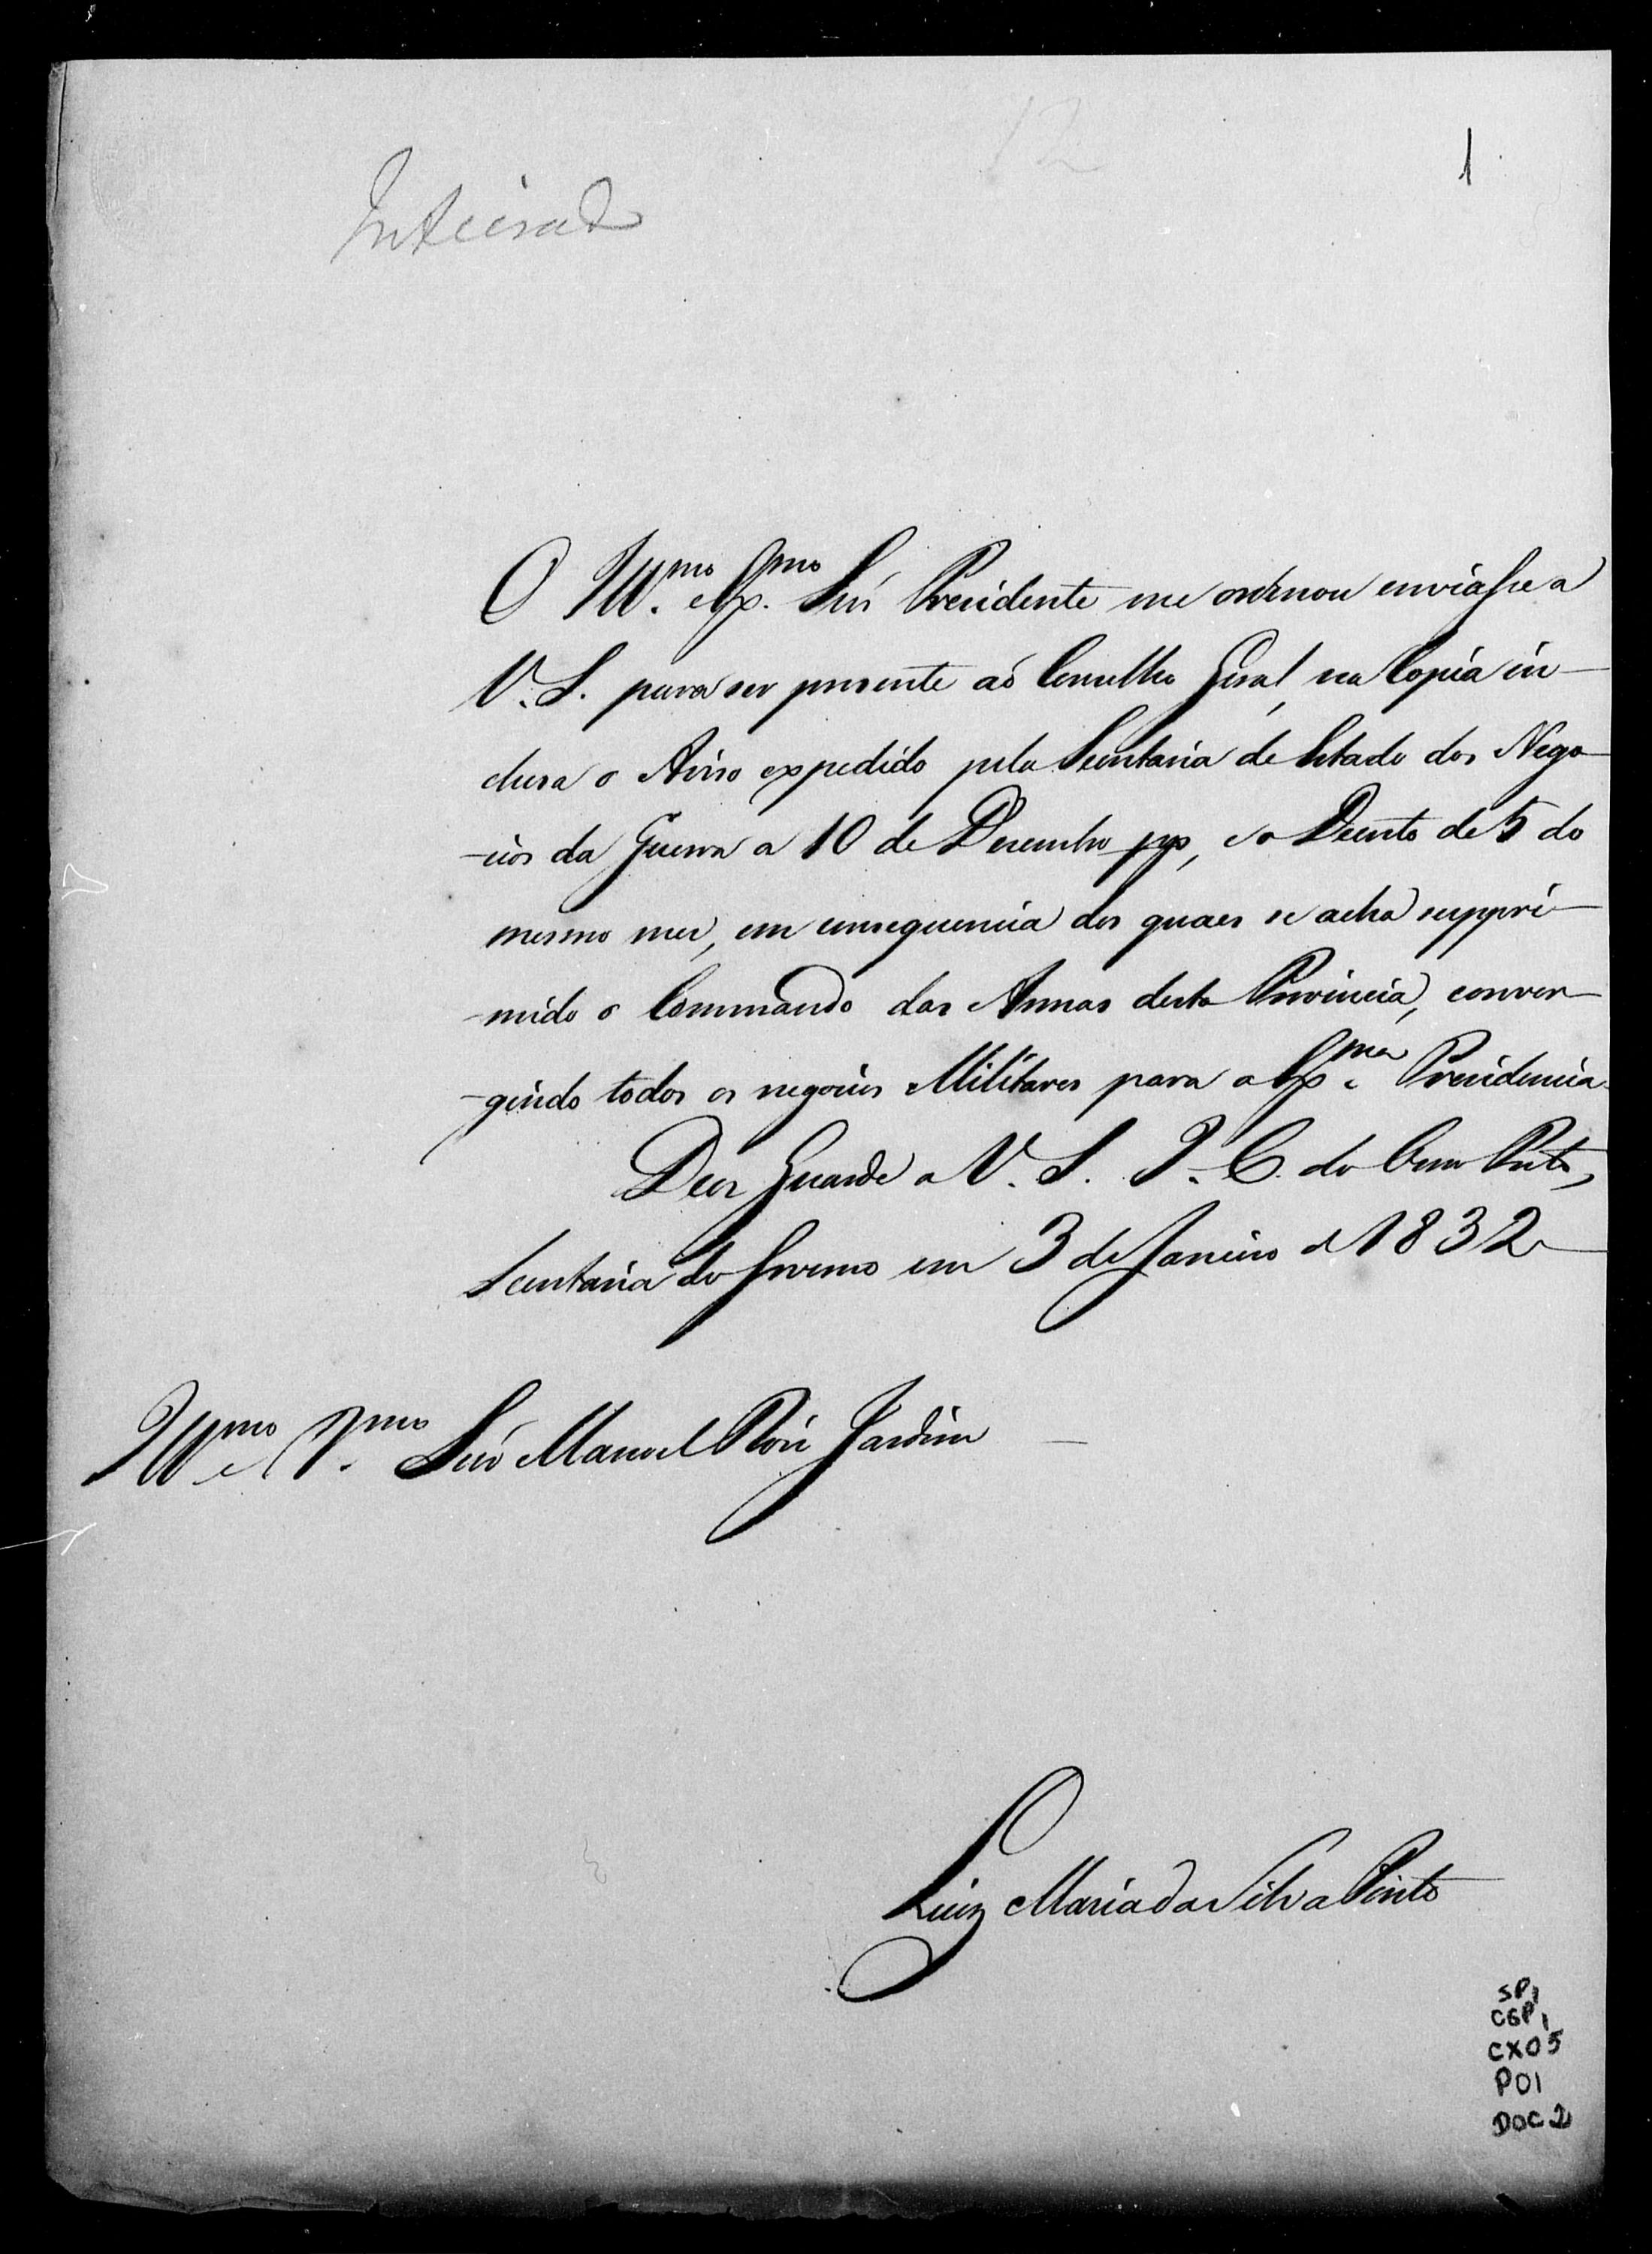 12
1
Inteirado
O Ill.mo e Ex.mo Snr Presidente me ordenou enviasse a
V. S. para ser presente ao Conselho Geral, na Copia in-
clusa o Aviso expedido pela Secretaria de Estado dos Nego-
-cios da Guerra a 10 de Dezembro pp, e o Decreto de 5 do
mesmo mez, em consequencia dos quaes se acha suppri-
-mido o Commando das Armas desta Provincia, conver-
-gindo todos os negocios Militares para a Ex.ma Presidencia.
Deos Guarde a V. S. I. C. do Ouro Preto,
Secretaria do Governo em 3 de Janeiro de 1832
Ill.mo e R.mo Snr Manoel Roiz Jardim
Luiz Maria da Silva Pinto
SP1
CGP1
CX05
P01
DOC2